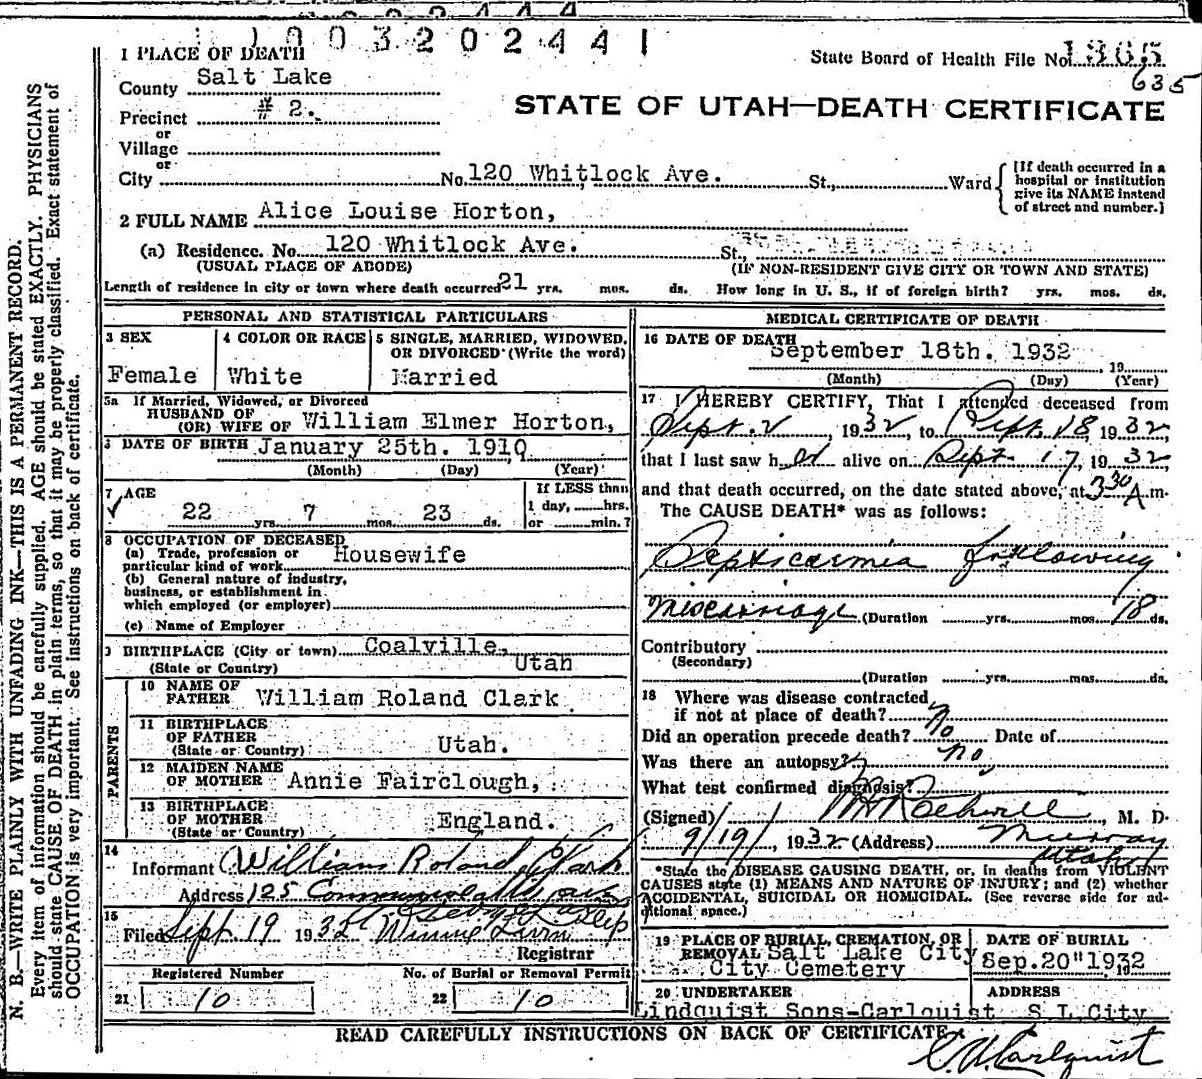 1003202441
1 PLACE OF DEATH
State Board of Health File No. 1365
635
County Salt Lake
STATE OF UTAH—DEATH CERTIFICATE
Precinct # 2.
or
Village
or
City No. 120 Whitlock Ave. St., Ward
[If death occurred in a hospital or institution give its NAME instead of street and number.]
2 FULL NAME Alice Louise Horton,
(a) Residence. No. 120 Whitlock Ave. St.,
(USUAL PLACE OF ABODE) (IF NON-RESIDENT GIVE CITY OR TOWN AND STATE)
Length of residence in city or town where death occurred 21 yrs. mos. ds. How long in U. S., if of foreign birth? yrs. mos. ds.
PERSONAL AND STATISTICAL PARTICULARS
3 SEX
Female
4 COLOR OR RACE
White
5 SINGLE, MARRIED, WIDOWED, OR DIVORCED (Write the word)
Married
5a If Married, Widowed, or Divorced
HUSBAND OF
(OR) WIFE OF William Elmer Horton,
DATE OF BIRTH January 25th. 1910
(Month) (Day) (Year)
7 AGE
22 yrs. 7 mos. 23 ds.
If LESS than
1 day, hrs.
or min.?
8 OCCUPATION OF DECEASED
(a) Trade, profession or
particular kind of work Housewife
(b) General nature of industry,
business, or establishment in
which employed (or employer)
(c) Name of Employer
9 BIRTHPLACE (City or town) Coalville,
(State or Country) Utah
PARENTS
10 NAME OF FATHER William Roland Clark
11 BIRTHPLACE OF FATHER
(State or Country) Utah.
12 MAIDEN NAME OF MOTHER Annie Fairclough,
13 BIRTHPLACE OF MOTHER
(State or Country) England.
14
Informant William Roland Clark
Address 125 Commonwealth
15
Filed Sept. 19 1932 Winnie
Registrar
Registered Number
21 10
No. of Burial or Removal Permit
22 10
MEDICAL CERTIFICATE OF DEATH
16 DATE OF DEATH
September 18th. 1932 , 19
(Month) (Day) (Year)
17 I HEREBY CERTIFY, That I attended deceased from
Sept. 2, 1932, to Sept. 18, 1932,
that I last saw her alive on Sept. 17, 1932
and that death occurred, on the date stated above, at 3 30 A.m.
The CAUSE DEATH* was as follows:
Septicaemia following
Miscarriage (Duration yrs. mos. 18 ds.
Contributory
(Secondary)
(Duration yrs. mos. ds.
18 Where was disease contracted
if not at place of death?
Did an operation precede death? No Date of
Was there an autopsy? no
What test confirmed diagnosis?
(Signed) Rothwell, M. D.
9/19/, 1932 (Address) Murray
Utah
*State the DISEASE CAUSING DEATH, or, in deaths from VIOLENT
CAUSES state (1) MEANS AND NATURE OF INJURY; and (2) whether
ACCIDENTAL, SUICIDAL OR HOMICIDAL. (See reverse side for ad-
ditional space.)
19 PLACE OF BURIAL, CREMATION, OR
REMOVAL Salt Lake City
City Cemetery
DATE OF BURIAL
Sep. 20" 1932
20 UNDERTAKER ADDRESS
Lindquist Sons-Carlquist S L City
READ CAREFULLY INSTRUCTIONS ON BACK OF CERTIFICATE.
C. A. Carlquist
N. B.—WRITE PLAINLY WITH UNFADING INK—THIS IS A PERMANENT RECORD.
Every item of information should be carefully supplied. AGE should be stated EXACTLY. PHYSICIANS
should state CAUSE OF DEATH in plain terms, so that it may be properly classified. Exact statement of
OCCUPATION is very important. See instructions on back of certificate.